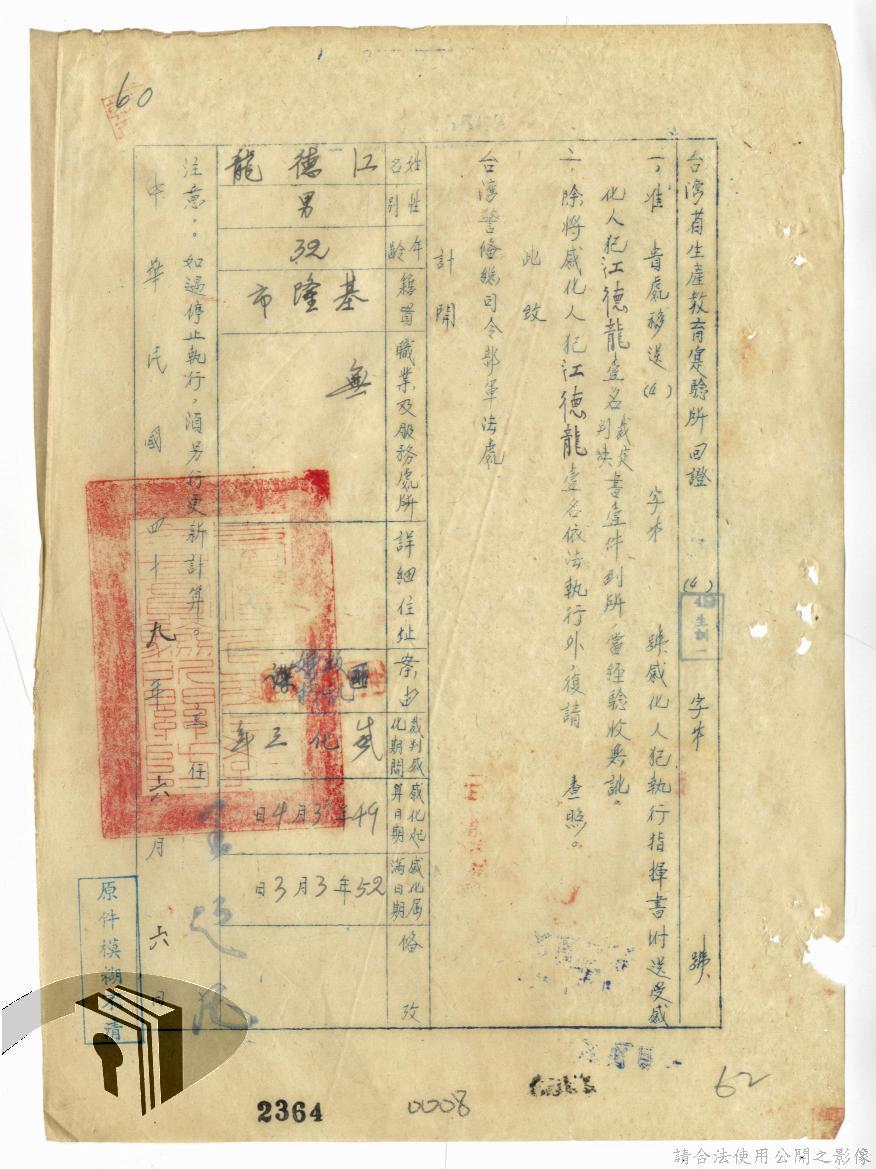 60
台湾省生產教育實驗所回證 (4) 49生訓一 字第 號
一、准 貴處移送(4) 字第 號感化人犯執行指揮書附送受感
化人犯江德龍壹名裁定判决書壹件到所，當經驗收無訛。
二、除將感化人犯江德龍壹名依法執行外，復請 查照。
此致
台湾警备總司令部軍法處
計開
姓名 性別 年齡 籍貫 職業及服務處所 詳細住址 案由 裁判感化期間 感化起算日期 感化屆滿日期 俻攷
江德龍 男 32 基隆市 無 感化三年 49年3月4日 52年3月3日
注意：如過停止執行，須另行更新計算。
主任
中華民國四十九年六月六日
原件模糊不清
2364
0008
62
請合法使用公開之影像